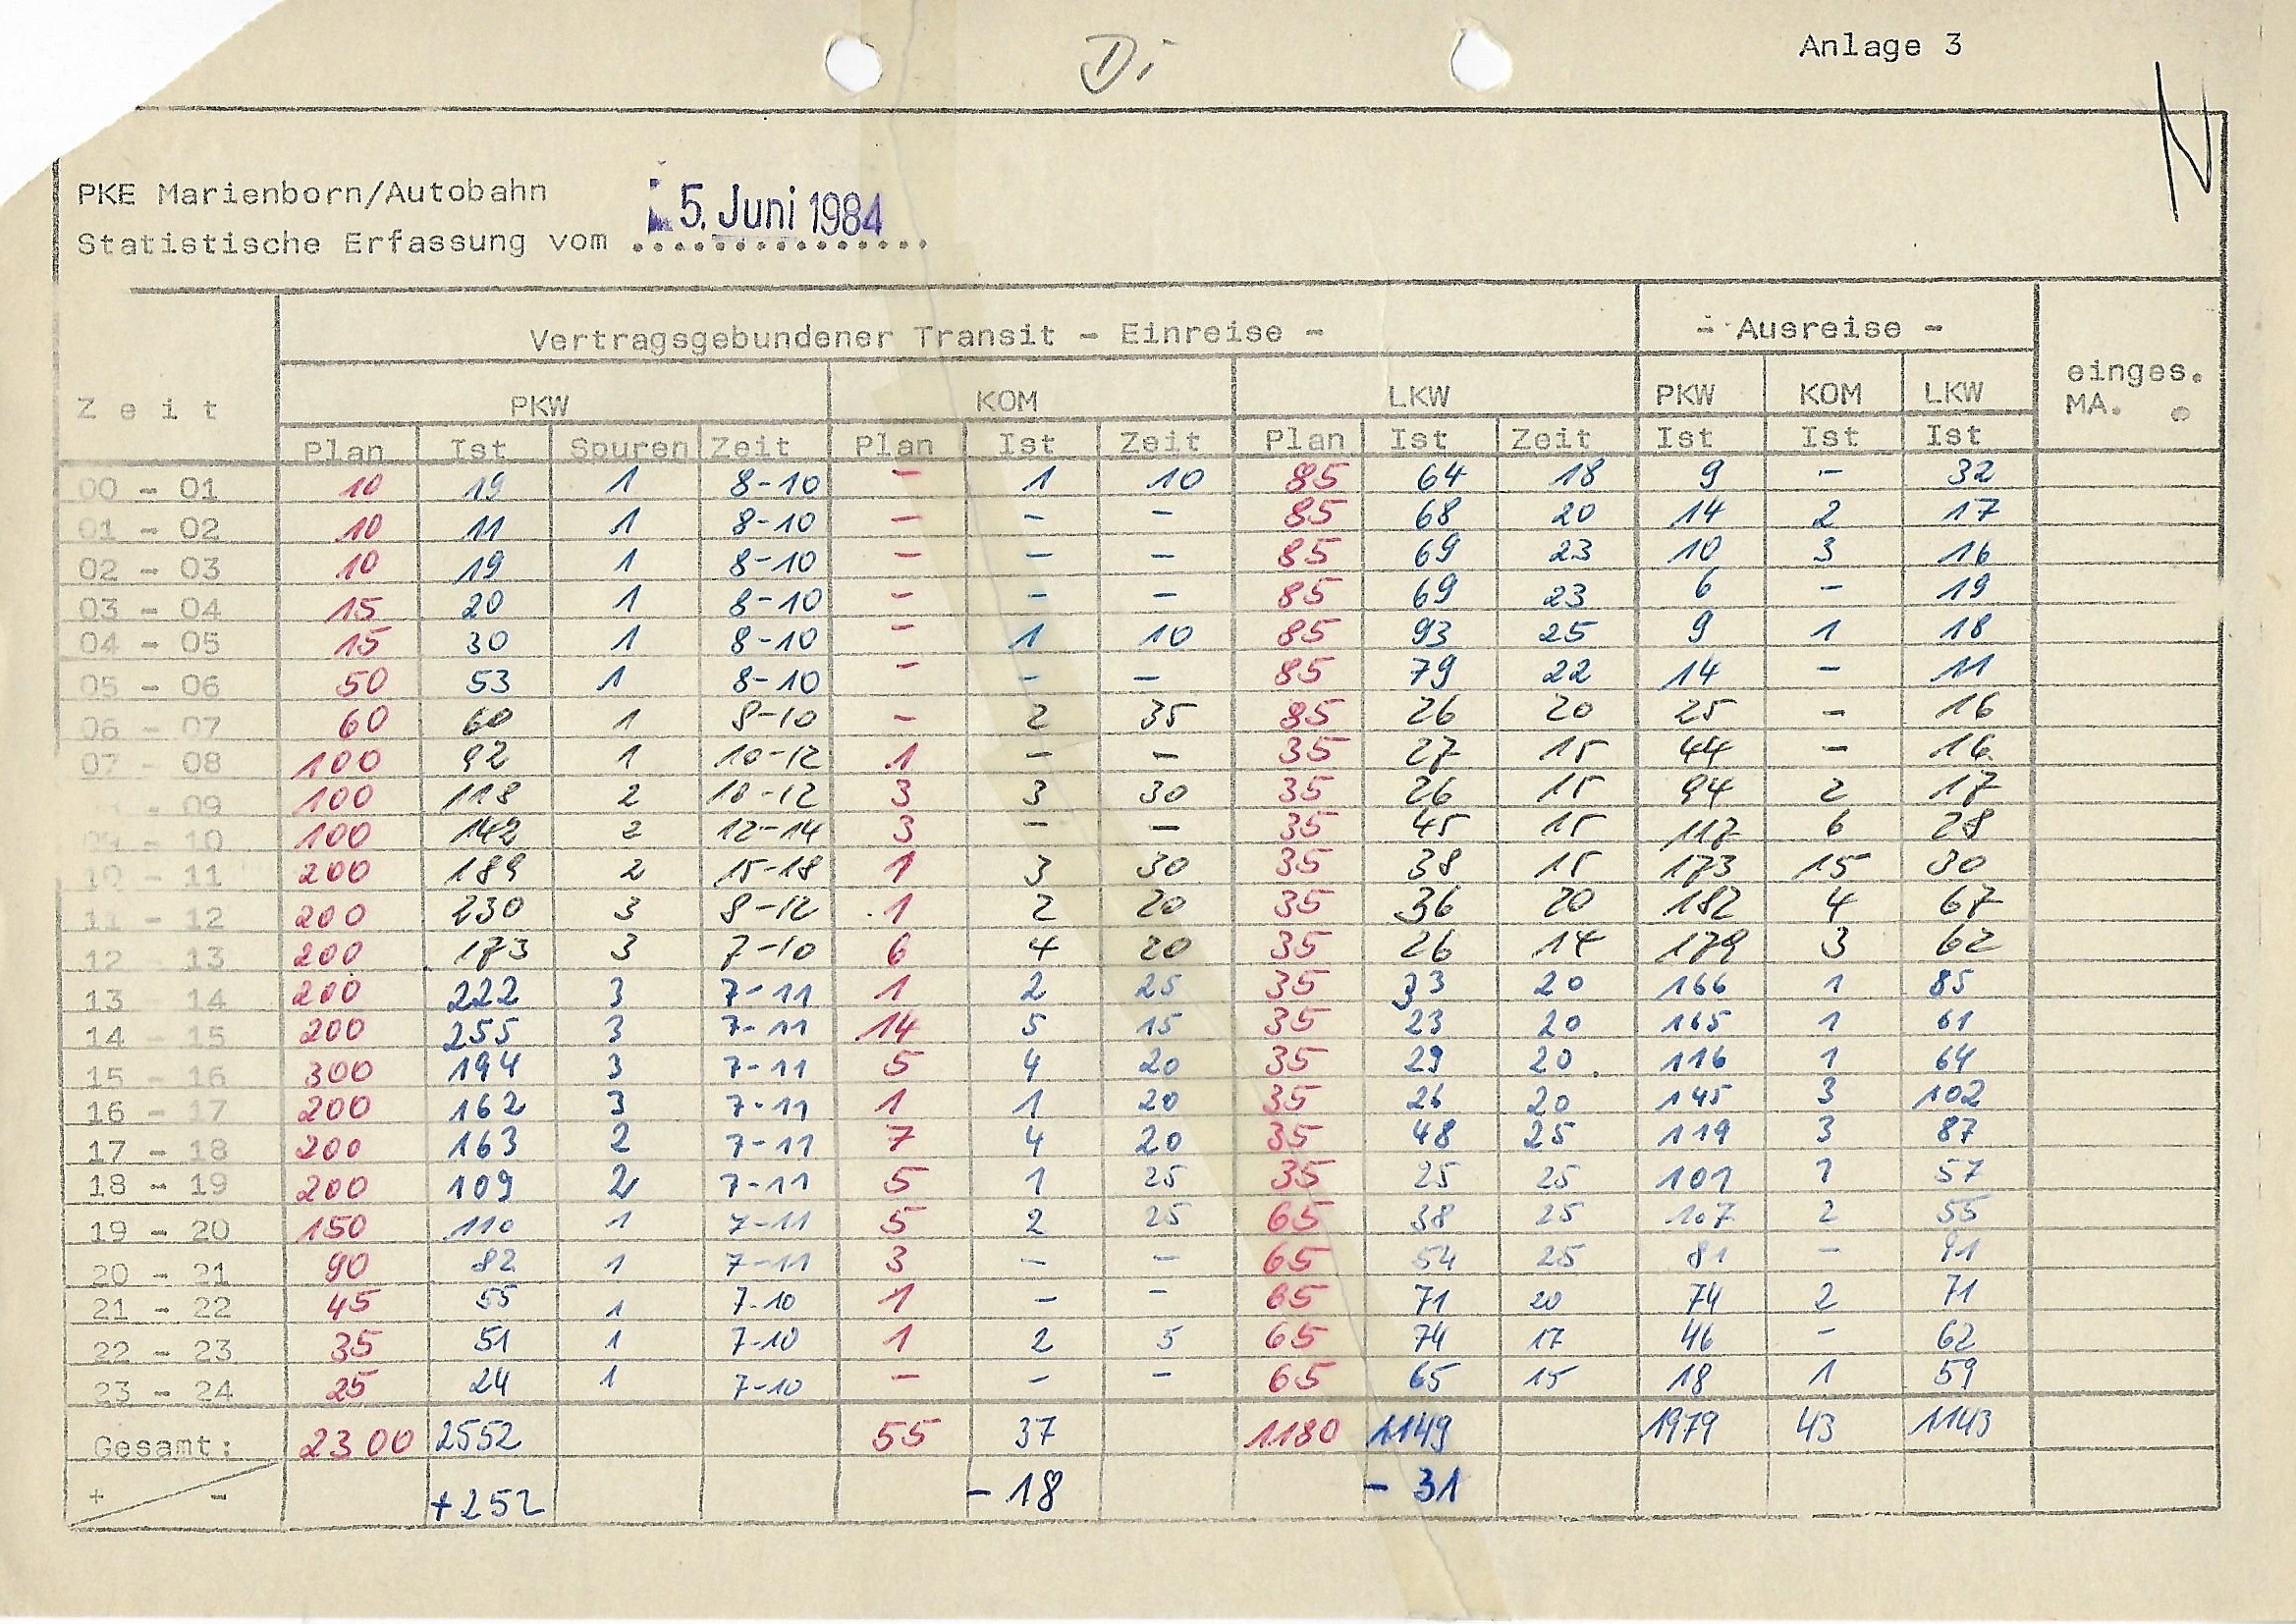 Di
Anlage 3
N
PKE Marienborn/Autobahn
Statistische Erfassung vom 5. Juni 1984
Vertragsgebundener Transit - Einreise - - Ausreise -
Zeit PKW KOM LKW PKW KOM LKW einges. MA.
Plan Ist Spuren Zeit Plan Ist Zeit Plan Ist Zeit Ist Ist Ist
00 - 01 10 19 1 8-10 - 1 10 85 64 18 9 - 32
01 - 02 10 11 1 8-10 - - - 85 68 20 14 2 17
02 - 03 10 19 1 8-10 - - - 85 69 23 10 3 16
03 - 04 15 20 1 8-10 - - - 85 69 23 6 - 19
04 - 05 15 30 1 8-10 - 1 10 85 93 25 9 1 18
05 - 06 50 53 1 8-10 - - - 85 79 22 14 - 11
06 - 07 60 60 1 8-10 - 2 35 85 26 20 25 - 16
07 - 08 100 92 1 10-12 1 - - 35 27 15 44 - 16
- 09 100 118 2 10-12 3 3 30 35 26 15 94 2 17
09 - 10 100 142 2 12-14 3 - - 35 45 15 117 6 28
10 - 11 200 189 2 15-18 1 3 30 35 38 15 173 15 30
11 - 12 200 230 3 8-12 1 2 20 35 36 20 182 4 67
12 - 13 200 173 3 7-10 6 4 20 35 26 14 179 3 62
13 14 200 222 3 7-11 1 2 25 35 33 20 166 1 85
14 - 15 200 255 3 7-11 14 5 15 35 23 20 165 1 61
15 - 16 300 194 3 7-11 5 4 20 35 29 20 116 1 64
16 - 17 200 162 3 7-11 1 1 20 35 26 20 145 3 102
17 - 18 200 163 2 7-11 7 4 20 35 48 25 119 3 87
18 - 19 200 109 2 7-11 5 1 25 35 25 25 101 1 57
19 - 20 150 110 1 7-11 5 2 25 65 38 25 107 2 55
20 - 21 90 82 1 7-11 3 - - 65 54 25 81 - 91
21 - 22 45 55 1 7-10 1 - - 65 71 20 74 2 71
22 - 23 35 51 1 7-10 1 2 5 65 74 17 46 - 62
23 - 24 25 24 1 7-10 - - - 65 65 15 18 1 59
Gesamt: 2300 2552 55 37 1180 1149 1979 43 1143
+ - +252 - 18 - 31